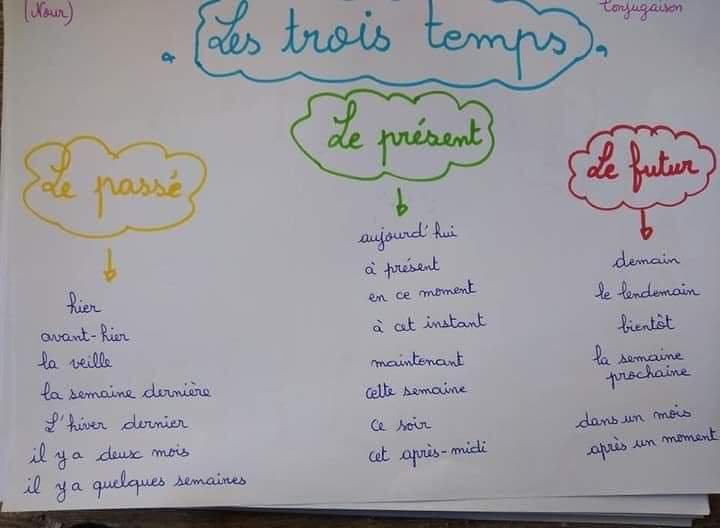 (Nour)
Conjugaison
Les trois temps
Le passé
hier
avant-hier
la veille
la semaine dernière
L'hiver dernier
il y a deux mois
il y a quelques semaines
Le présent
aujourd'hui
à présent
en ce moment
à cet instant
maintenant
cette semaine
ce soir
cet après-midi
Le futur
demain
le lendemain
bientôt
la semaine
prochaine
dans un mois
après un moment